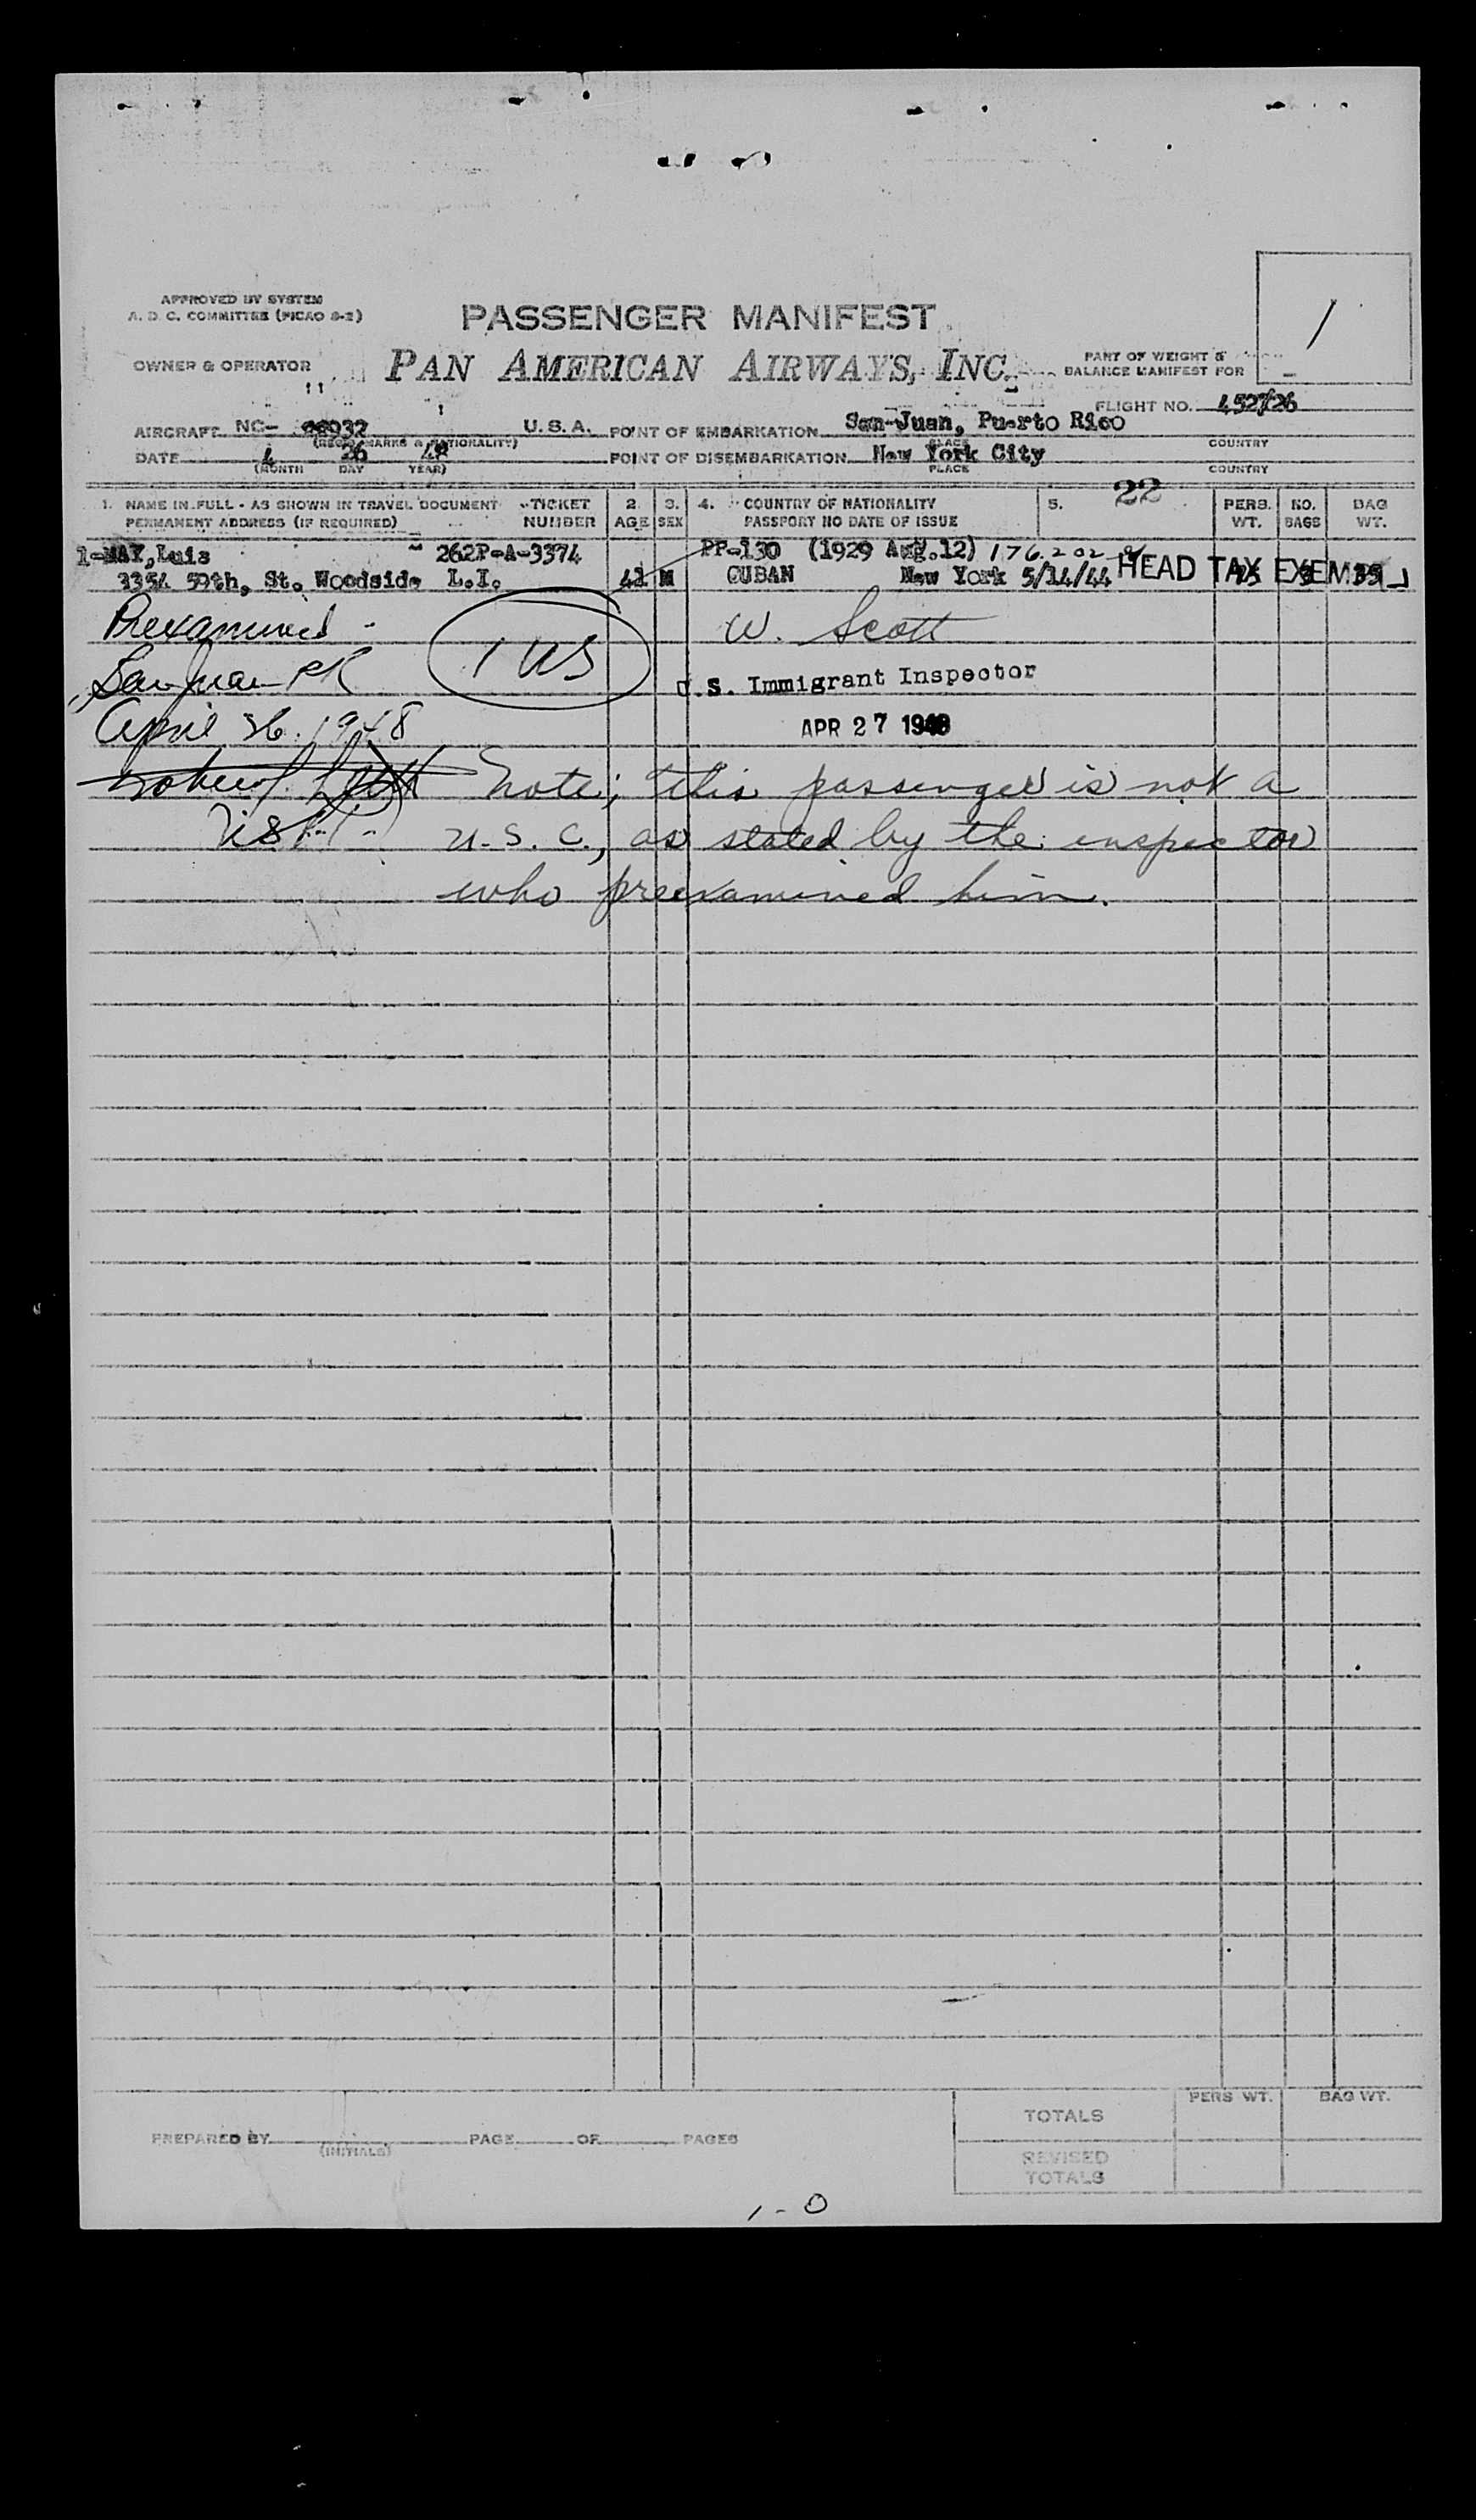 APPROVED BY SYSTEM
A. D. C. COMMITTEE (PICAO S-2)
PASSENGER MANIFEST
/
OWNER & OPERATOR
PAN AMERICAN AIRWAYS, INC.
PART OF WEIGHT &
BALANCE MANIFEST FOR
FLIGHT NO. 452/26
AIRCRAFT NC- 88932 U. S. A. POINT OF EMBARKATION San-Juan, Puerto Rico
(REG. MARKS & NATIONALITY) PLACE COUNTRY
DATE 4 26 48 POINT OF DISEMBARKATION New York City
(MONTH DAY YEAR) PLACE COUNTRY
22
1. NAME IN FULL - AS SHOWN IN TRAVEL DOCUMENT TICKET 2. 3. 4. COUNTRY OF NATIONALITY 5. PERS. NO. BAG
PERMANENT ADDRESS (IF REQUIRED) NUMBER AGE SEX PASSPORT NO DATE OF ISSUE WT. BAGS WT.
1-MAY, Luis 262P-A-3374 PP-130 (1929 Aug.12) 176.202
3354 59th, St. Woodside L.I. 41 M CUBAN New York 5/14/44 HEAD TAX EXEM
Prexamined - 1 US W. Scott
San Juan PR U.S. Immigrant Inspector
April 26. 1948 APR 27 1948
note; this passenger is not a
U.S.C., as stated by the inspector
who preexamined him.
PERS WT. BAG WT.
TOTALS
PREPARED BY PAGE OF PAGES
(INITIALS)
REVISED
TOTALS
1-0